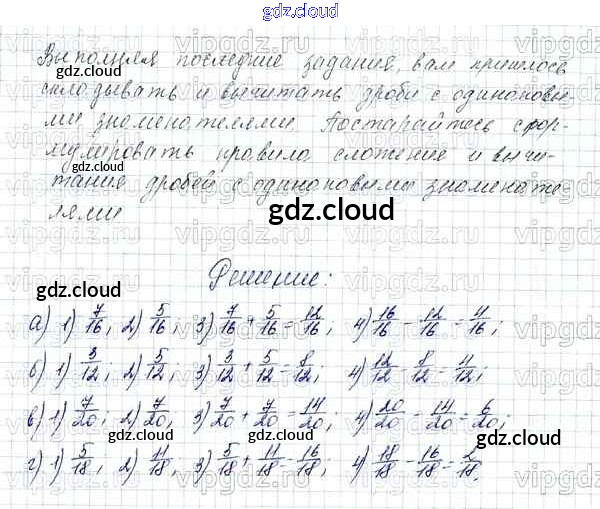 gdz.cloud
Выполняя последние задания, вам пришлось
складывать и вычитать дроби с одинаковы-
ми знаменателями. Постарайтесь сфор-
мулировать правила сложение и вычи-
тание дробей с одинаковыми знаменате-
лями
gdz.cloud
Решение:
а) 1) 7/16; 2) 5/16; 3) 7/16 + 5/16 = 12/16; 4) 16/16 - 12/16 = 4/16;
б) 1) 3/12; 2) 5/12; 3) 3/12 + 5/12 = 8/12; 4) 12/12 - 8/12 = 4/12;
в) 1) 7/20; 2) 7/20; 3) 7/20 + 7/20 = 14/20; 4) 20/20 - 14/20 = 6/20;
г) 1) 5/18; 2) 11/18; 3) 5/18 + 11/18 = 16/18; 4) 18/18 - 16/18 = 2/18.